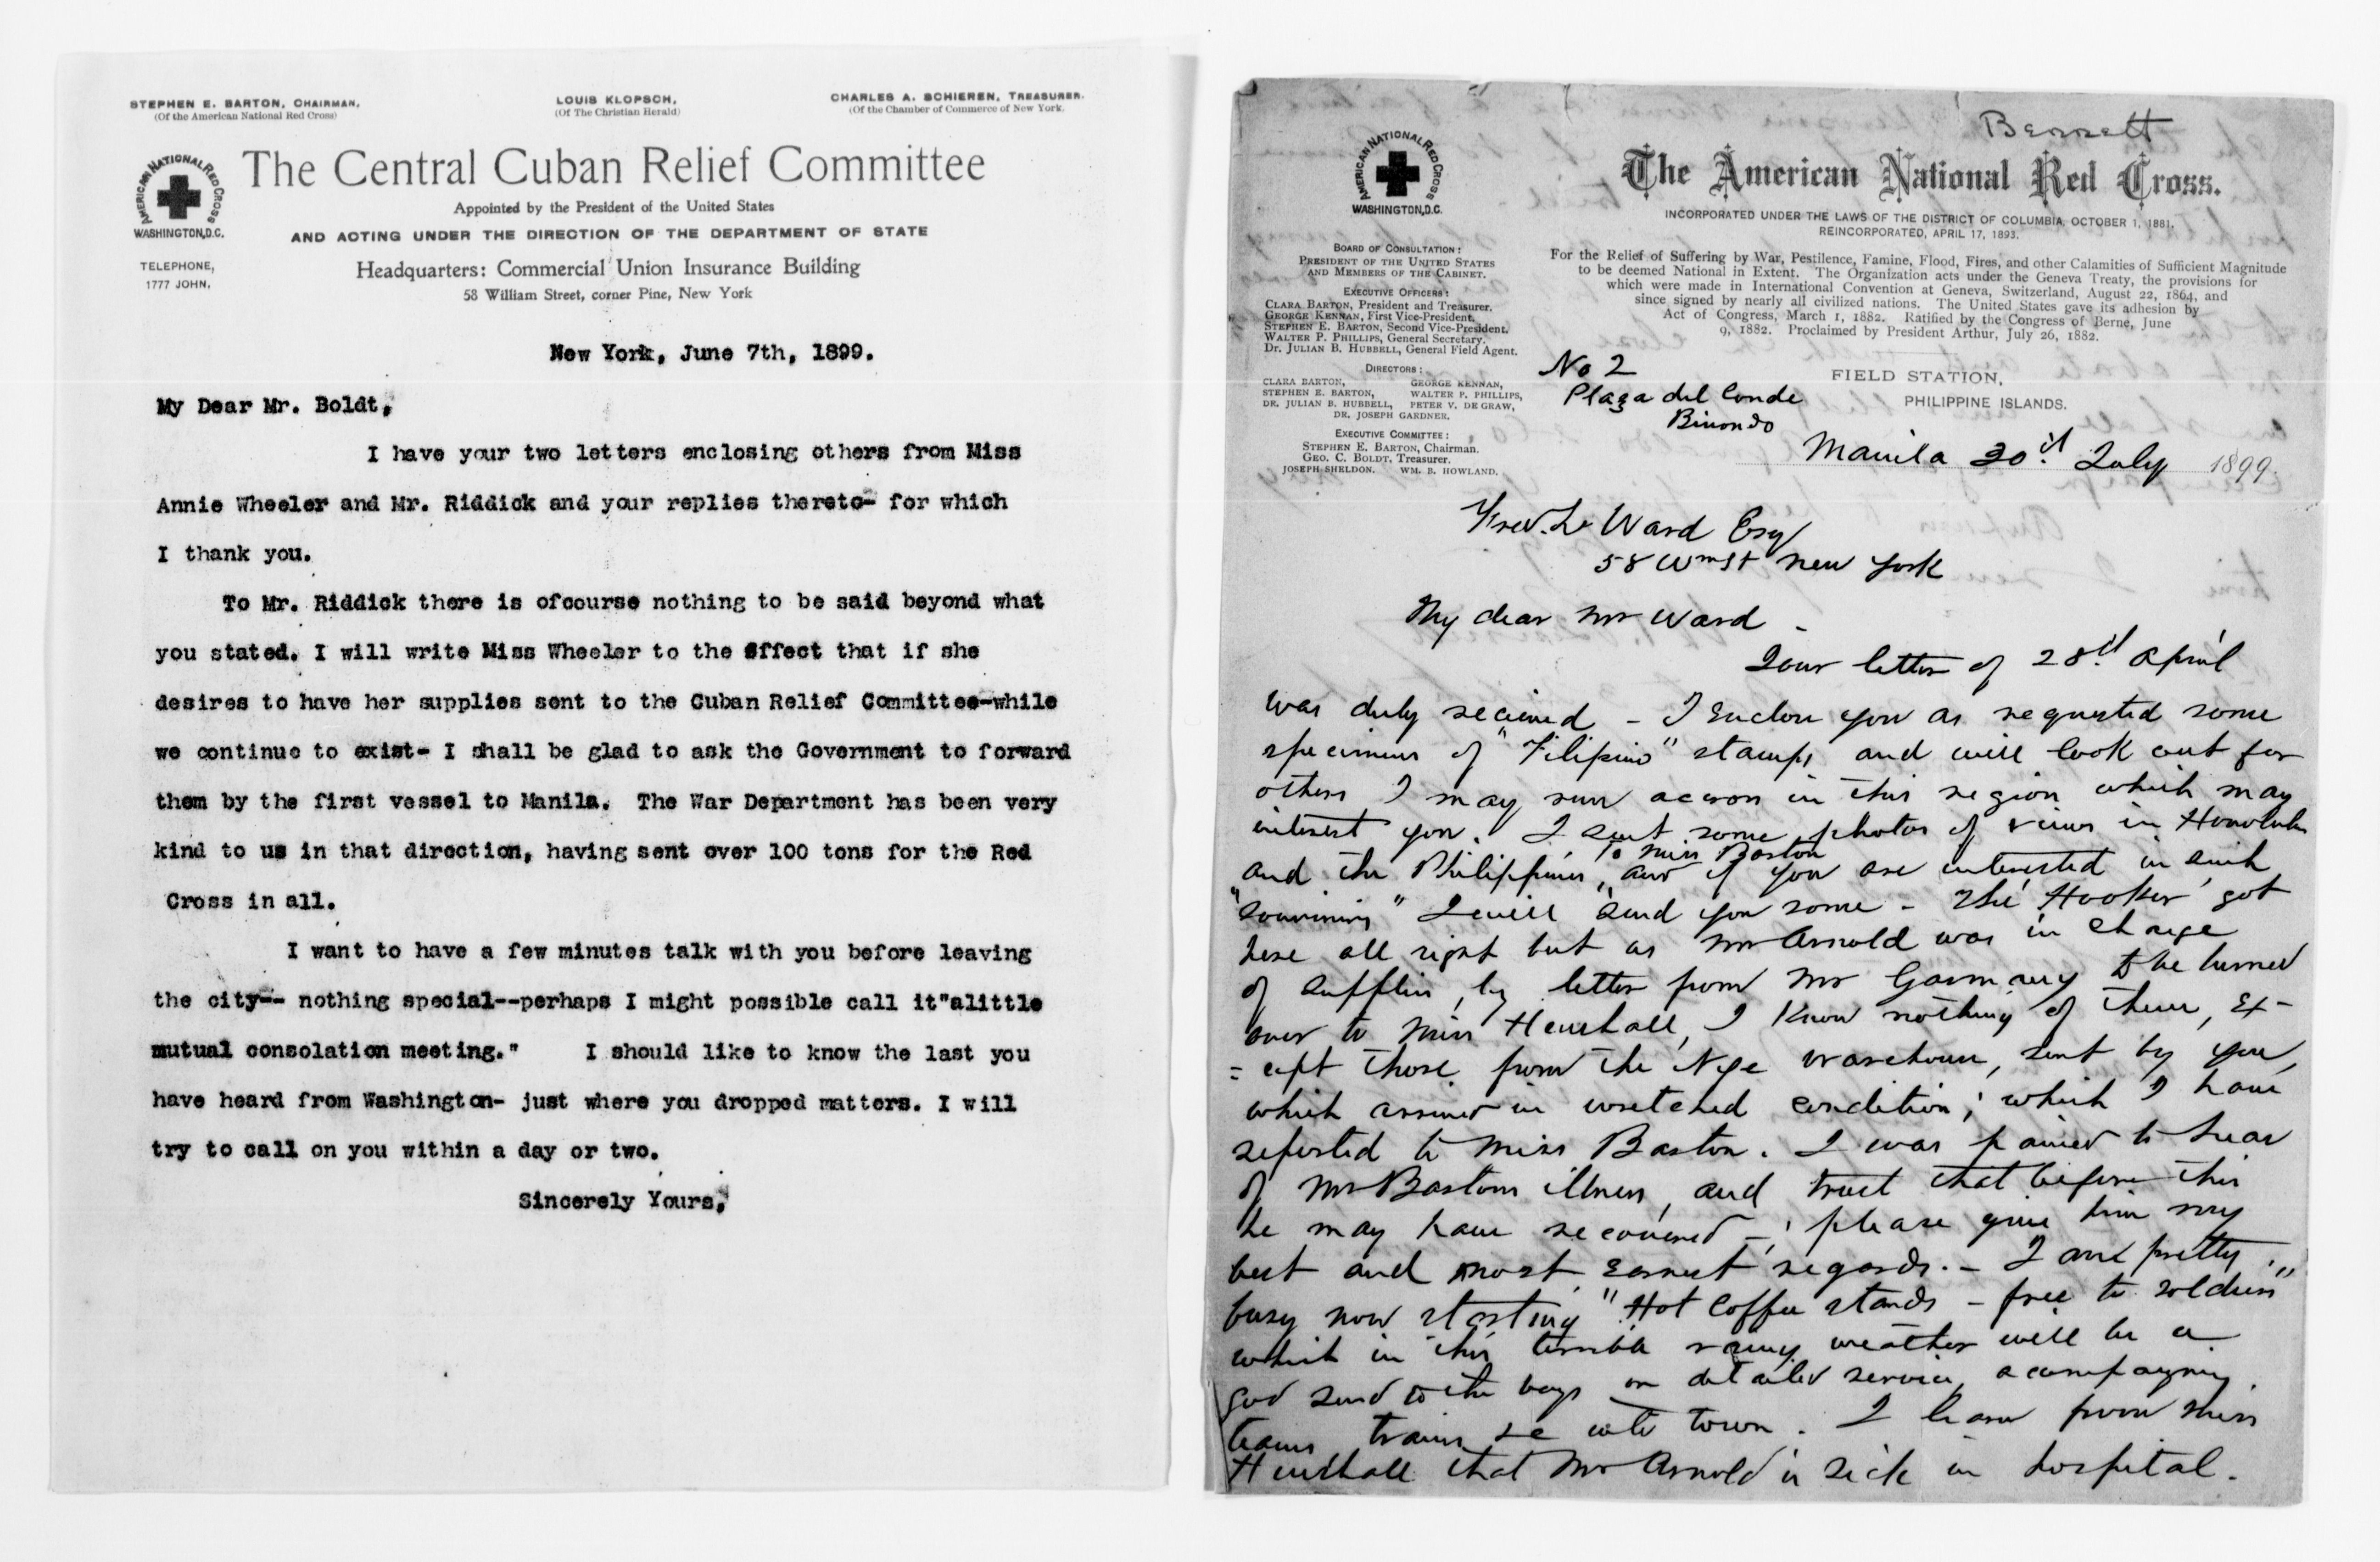 STEPHEN E. BARTON, CHAIRMAN,
(Of the American National Red Cross)
LOUIS KLOPSCH,
(Of The Christian Herald)
CHARLES A. SCHIEREN, TREASURER.
(Of the Chamber of Commerce of New York.
AMERICAN NATIONAL RED CROSS
WASHINGTON, D.C.
The Central Cuban Relief Committee
Appointed by the President of the United States
AND ACTING UNDER THE DIRECTION OF THE DEPARTMENT OF STATE
TELEPHONE,
1777 JOHN.
Headquarters: Commercial Union Insurance Building
58 William Street, corner Pine, New York
New York, June 7th, 1899.
My Dear Mr. Boldt,
I have your two letters enclosing others from Miss
Annie Wheeler and Mr. Riddick and your replies thereto- for which
I thank you.
To Mr. Riddick there is ofcourse nothing to be said beyond what
you stated. I will write Miss Wheeler to the effect that if she
desires to have her supplies sent to the Cuban Relief Committee-while
we continue to exist- I shall be glad to ask the Government to forward
them by the first vessel to Manila. The War Department has been very
kind to us in that direction, having sent over 100 tons for the Red
Cross in all.
I want to have a few minutes talk with you before leaving
the city-- nothing special--perhaps I might possible call it"alittle
mutual consolation meeting." I should like to know the last you
have heard from Washington- just where you dropped matters. I will
try to call on you within a day or two.
Sincerely Yours,
Bennett
AMERICAN NATIONAL RED CROSS
WASHINGTON, D.C.
The American National Red Cross.
INCORPORATED UNDER THE LAWS OF THE DISTRICT OF COLUMBIA, OCTOBER 1, 1881.
REINCORPORATED, APRIL 17, 1893.
For the Relief of Suffering by War, Pestilence, Famine, Flood, Fires, and other Calamities of Sufficient Magnitude
to be deemed National in Extent. The Organization acts under the Geneva Treaty, the provisions for
which were made in International Convention at Geneva, Switzerland, August 22, 1864, and
since signed by nearly all civilized nations. The United States gave its adhesion by
Act of Congress, March 1, 1882. Ratified by the Congress of Berne, June
9, 1882. Proclaimed by President Arthur, July 26, 1882.
BOARD OF CONSULTATION:
PRESIDENT OF THE UNITED STATES
AND MEMBERS OF THE CABINET.
EXECUTIVE OFFICERS:
CLARA BARTON, President and Treasurer.
GEORGE KENNAN, First Vice-President.
STEPHEN E. BARTON, Second Vice-President.
WALTER P. PHILLIPS, General Secretary.
Dr. JULIAN B. HUBBELL, General Field Agent.
DIRECTORS:
CLARA BARTON, GEORGE KENNAN,
STEPHEN E. BARTON, WALTER P. PHILLIPS,
DR. JULIAN B. HUBBELL, PETER V. DE GRAW,
DR. JOSEPH GARDNER.
EXECUTIVE COMMITTEE:
STEPHEN E. BARTON, Chairman.
GEO. C. BOLDT, Treasurer.
JOSEPH SHELDON. WM. B. HOWLAND.
FIELD STATION,
PHILIPPINE ISLANDS.
No 2
Plaza del Conde
Binondo
Manila 30th July 1899.
Fred. L. Ward Esq
58 Wm St New York
My dear Mr Ward -
Your letter of 28th April
was duly received - I enclose you as requested some
specimens of "Filipino" stamps and will look out for
others I may run across in this region which may
interest you. I sent some photos of views in Honolulu
and the Philippines, to Miss Barton and if you are interested in such
"souvenirs" I will send you some - The 'Hooker' got
here all right but as Mr Arnold was in charge
of supplies, by letter from Mr to be turned
over to Miss Henshall, I know nothing of them, ex-
=cept those from the Nye warehouse, sent by you,
which arrived in wretched condition; which I have
reported to Miss Barton. I was pained to hear
of Mr Bartons illness, and trust that before this
he may have recovered -, please give him my
best and most earnest regards. - I am pretty
busy now starting "Hot Coffee stands - free to soldiers"
which in this terrible rainy weather will be a
God send to the boys on detailed service, acompaning
teams, trains &c into town. I learn from Miss
Henshall that Mr Arnold is sick in hospital.